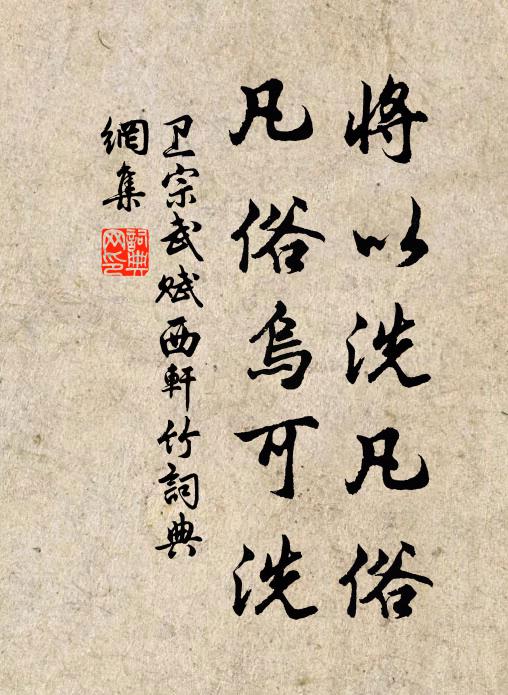 将以洗凡俗
凡俗烏可洗
卫宗武赋西軒竹詞典
網集
詞典
网印